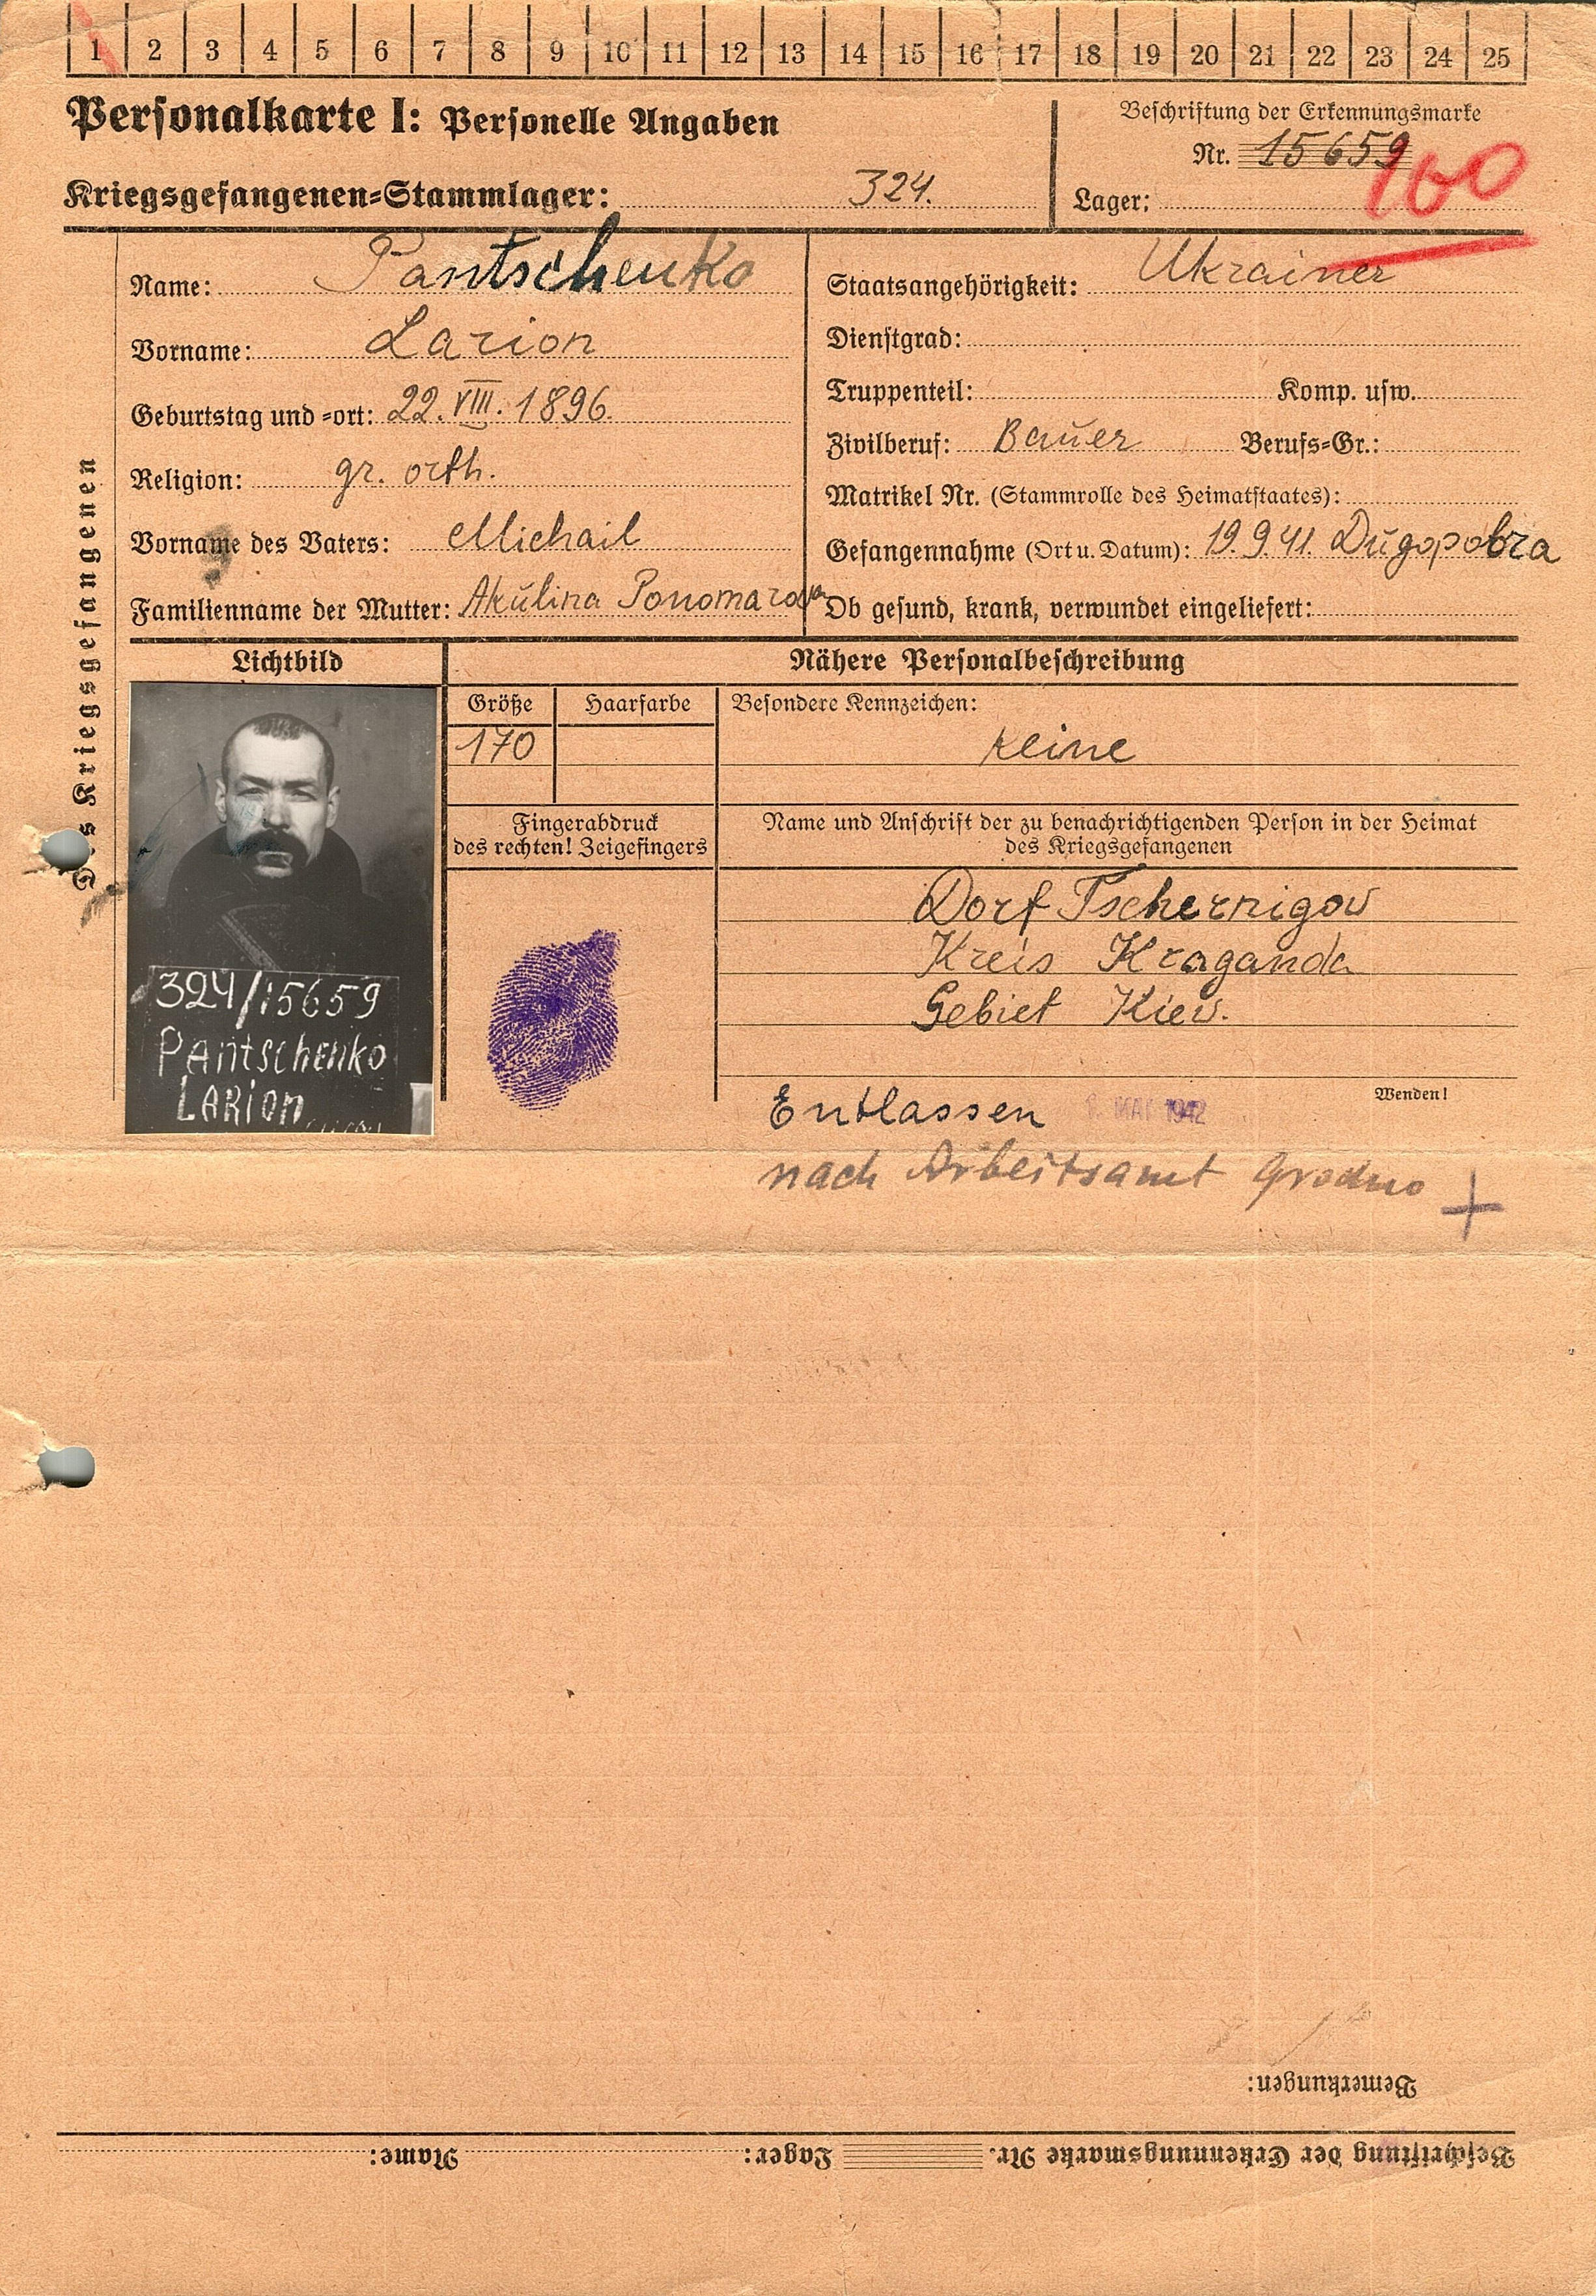 1 2 3 4 5 6 7 8 9 10 11 12 13 14 15 16 17 18 19 20 21 22 23 24 25
Personalkarte I: Personelle Angaben
Kriegsgefangenen-Stammlager: 324.
Beschriftung der Erkennungsmarke
Nr. 15659
160
Lager:
Des Kriegsgefangenen
Name: Pantschenko
Vorname: Larion
Geburtstag und -ort: 22. VIII. 1896.
Religion: gr. orth.
Vorname des Vaters: Michail
Familienname der Mutter: Akŭlina Ponomarova
Staatsangehörigkeit: Ukrainer
Dienstgrad:
Truppenteil: Komp. usw.
Zivilberuf: Baŭer Berufs-Gr.:
Matrikel Nr. (Stammrolle des Heimatstaates):
Gefangennahme (Ort u. Datum): 19.9.41. Dŭgopobra
Ob gesund, krank, verwundet eingeliefert:
Lichtbild
Nähere Personalbeschreibung
Größe Haarfarbe Besondere Kennzeichen:
170 keine
Fingerabdruck
des rechten! Zeigefingers
Name und Anschrift der zu benachrichtigenden Person in der Heimat
des Kriegsgefangenen
Dorf Tschernigow
Kreis Kraganda
Gebiet Kiew.
324/15659
Pantschenko
Larion
Wenden!
Entlassen MAI 1942
nach Arbeitsamt Grodno
Bemerkungen:
Beschriftung der Erkennungsmarke Nr. Lager: Name: